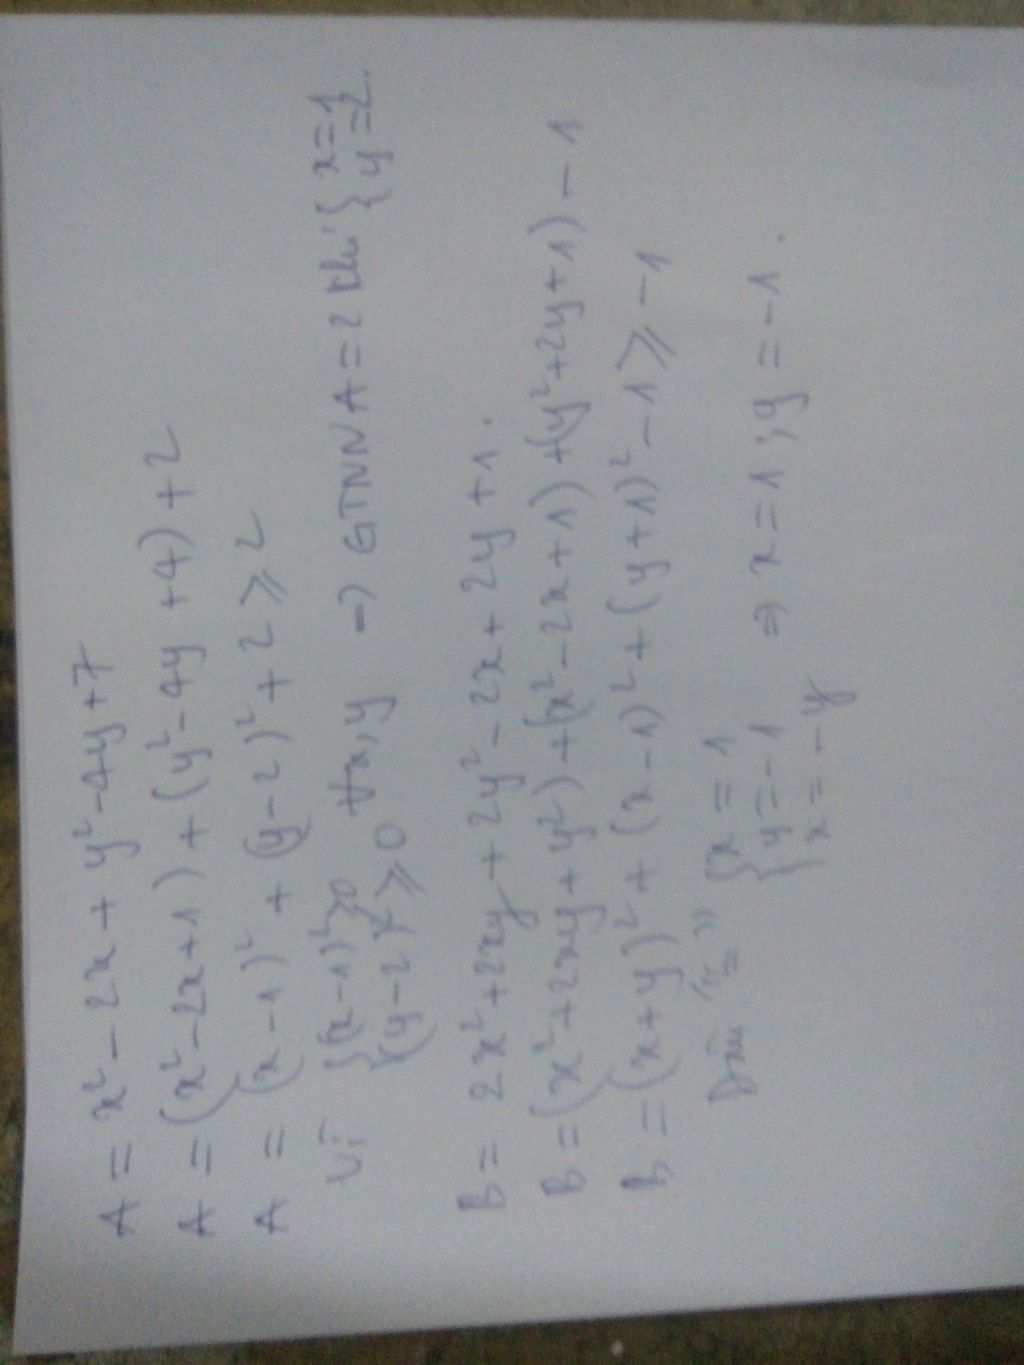 A = x² - 2x + y² - 4y + 7
A = (x² - 2x + 1) + (y² - 4y + 4) + 2
A = (x - 1)² + (y - 2)² + 2 ⩾ 2
Vì { (x - 1)² ⩾ 0
(y - 2)² ⩾ 0 ∀x, y → GTNN A = 2 khi { x = 1
y = 2.
B = 2x² + 2xy + 2y² - 2x + 2y + 1.
B = (x² + 2xy + y²) + (x² - 2x + 1) + (y² + 2y + 1) - 1
B = (x + y)² + (x - 1)² + (y + 1)² - 1 ⩾ -1
Dấu "=" { x = 1
y = -1
x = -y ⇒ x = 1 ; y = -1.